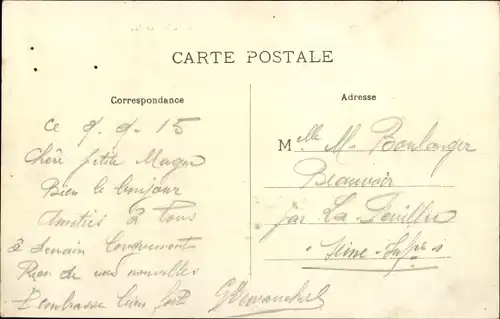 CARTE POSTALE
Correspondance
Adresse
Ce 9-9-15
Chère petite
Bien le bonjour
Amitiés à tous
à demain longuement
Rien de nouvelles
T'embrasse bien fort
Melle M. Boulanger
Beauvoir
par La Feuillie
Seine-Infre